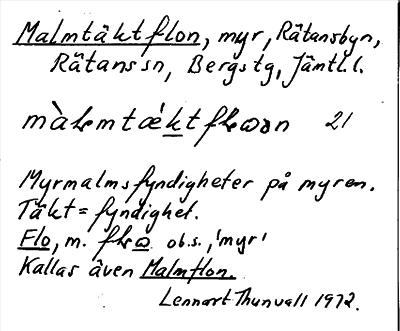 Malmtäktflon, myr, Rätansbyn,
Rätans sn, Bergs tg, Jämtl. l.
21
Myrmalmsfyndigheter på myren.
Täkt = fyndighet.
Flo, m. obs., 'myr'
Kallas även Malmflon.
Lennart Thunvall 1972.